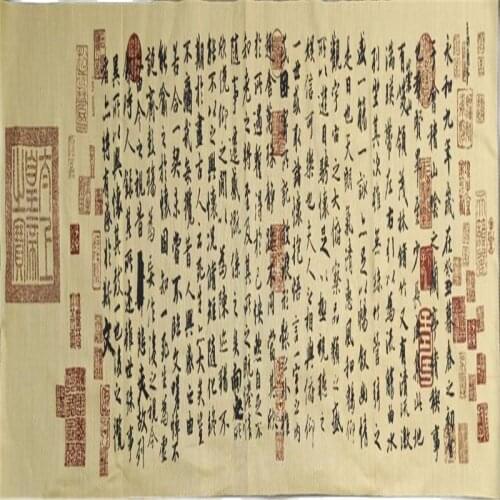 永和九年歲在癸丑暮春之初會
于會稽山陰之蘭亭脩稧事
也群賢畢至少長咸集此地
有崇山峻領茂林脩竹又有清流激
湍暎帶左右引以為流觴曲水
列坐其次雖無絲竹管弦之
盛一觴一詠亦足以暢叙幽情
是日也天朗氣清惠風和暢仰
觀宇宙之大俯察品類之盛
所以遊目騁懷足以極視聽之
娛信可樂也夫人之相與俯仰
一世或取諸懷抱悟言一室之內
或因寄所託放浪形骸之外雖
趣舍萬殊静躁不同當其欣
於所遇蹔得於己怏然自足不
知老之將至及其所之既惓情
隨事遷感慨係之矣向之所欣
俛仰之閒以為陳迹猶不
能不以之興懷況脩短隨化終
期於盡古人云死生亦大矣豈
不痛哉每攬昔人興感之由
若合一契未嘗不臨文嗟悼不
能喻之於懷固知一死生為虛
誕齊彭殤為妄作後之視今
亦由今之視昔悲夫故列
叙時人錄其所述雖世殊事
異所以興懷其致一也後之攬
者亦將有感於斯文